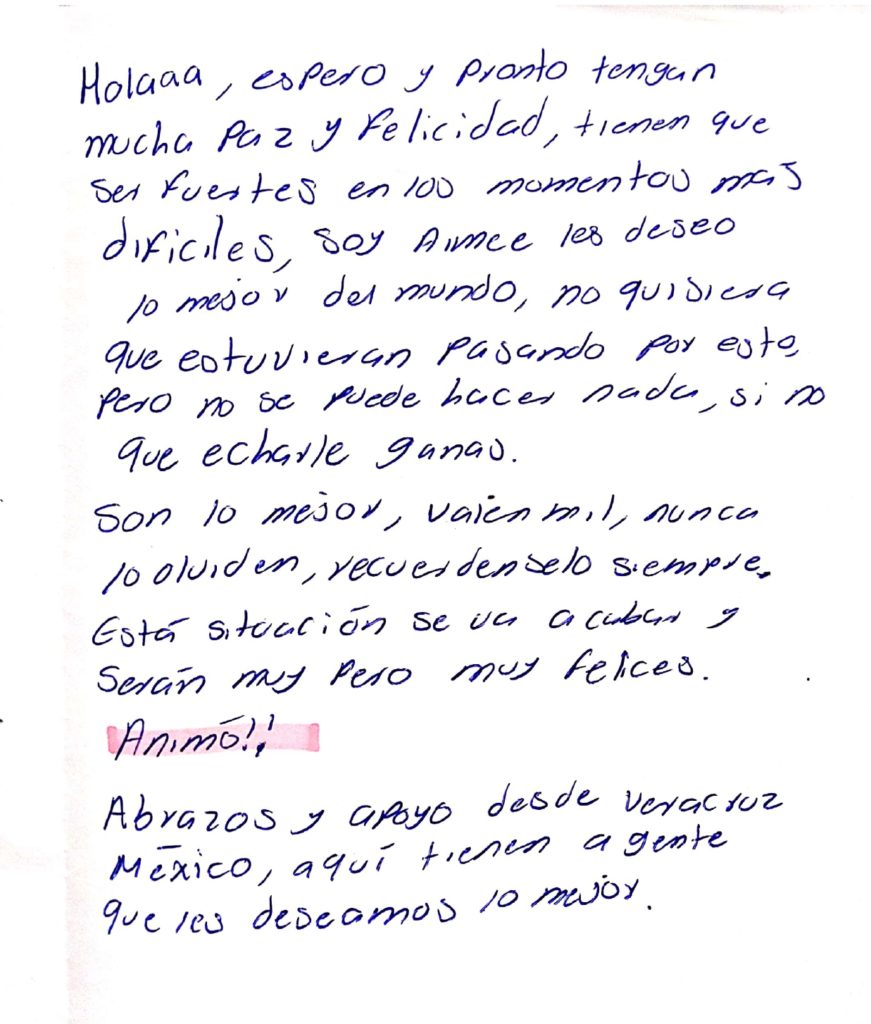 Holaaa, espero y pronto tengan
mucha paz y felicidad, tienen que
ser fuertes en los momentos mas
dificiles, soy Aimee les deseo
lo mejor del mundo, no quisiera
que estuvieran pasando por esto,
pero no se puede hacer nada, si no
que echarle ganas.
Son lo mejor, valen mil, nunca
lo olviden, recuerdenselo siempre.
Está situación se va acabar y
serán muy pero muy felices.
Animó!!
Abrazos y apoyo desde Veracruz
México, aquí tienen a gente
que les deseamos lo mejor.